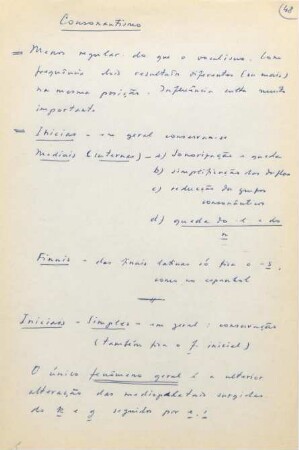 48
Consonantismo
= Menos regular do que o vocalismo. Com
frequência dois resultados diferentes (ou mais)
na mesma posição. Influência culta muito
importante
= Iniciais - em geral conservam-se
Mediais (internas) - a) sonorização e queda
b) simplificação das duplas
c) redução dos grupos
consonânticos
d) queda do l e do
n
Finais - das finais latinas só fica o -s,
como no espanhol
Iniciais - Simples - em geral: conservação
(também fica o f- inicial)
O único fenómeno geral é a ulterior
alteração das mediopalatais surgidas
do k e g seguidos por e, i